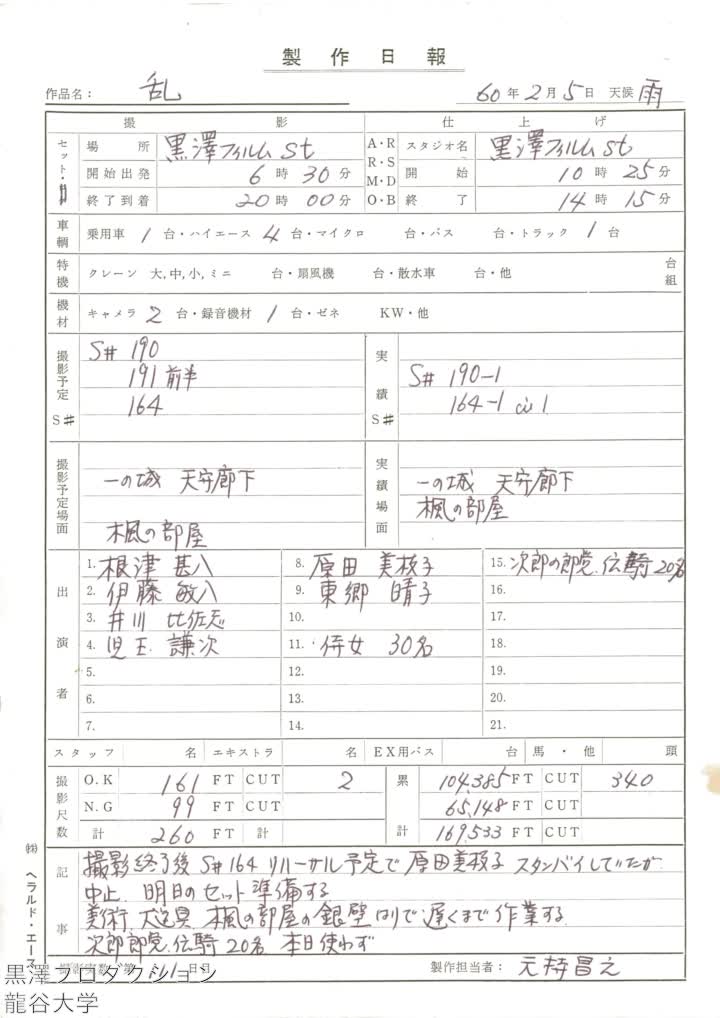 製作日報
作品名： 乱 60年2月5日 天候 雨
撮影 仕上げ
セット・ 場所 黒澤フィルムst A・R R・S M・D O・B スタジオ名 黒澤フィルムst
開始出発 6時30分 開始 10時25分
終了到着 20時00分 終了 14時15分
車輌 乗用車 1 台・ハイエース 4 台・マイクロ 台・バス 台・トラック 1 台
特機 クレーン 大,中,小,ミニ 台・扇風機 台・散水車 台・他 台組
機材 キャメラ 2 台・録音機材 1 台・ゼネ KW・他
撮影予定 S# S# 190
191 前半
164
実績 S# S# 190-1
164-1 1
撮影予定場面 一の城 天守廊下
楓の部屋
実績場面 一の城 天守廊下
楓の部屋
出演者
1. 根津 甚八 8. 原田 美枝子 15. 次郎の郎党、伝騎 20名
2. 伊藤 敏八 9. 東郷 晴子 16.
3. 井川 比佐志 10. 17.
4. 児玉 謙次 11. 侍女 30名 18.
5. 12. 19.
6. 13. 20.
7. 14. 21.
スタッフ 名 エキストラ 名 EX用バス 台 馬・他 頭
撮影尺数 O.K 161 FT CUT 2 累計 104,385 FT CUT 340
N.G 99 FT CUT 65,148 FT CUT
計 260 FT 計 169,533 FT CUT
記事 撮影終了後 S#164 リハーサル予定で 原田美枝子 スタンバイしていたが
中止 明日のセット準備する
美術 大道具 楓の部屋の銀壁はりで遅くまで作業する
次郎郎党、伝騎 20名 本日使わず
撮影実数 第 1日目 製作担当者： 元持昌之
㈱ ヘラルド・エース
黒澤プロダクション
龍谷大学